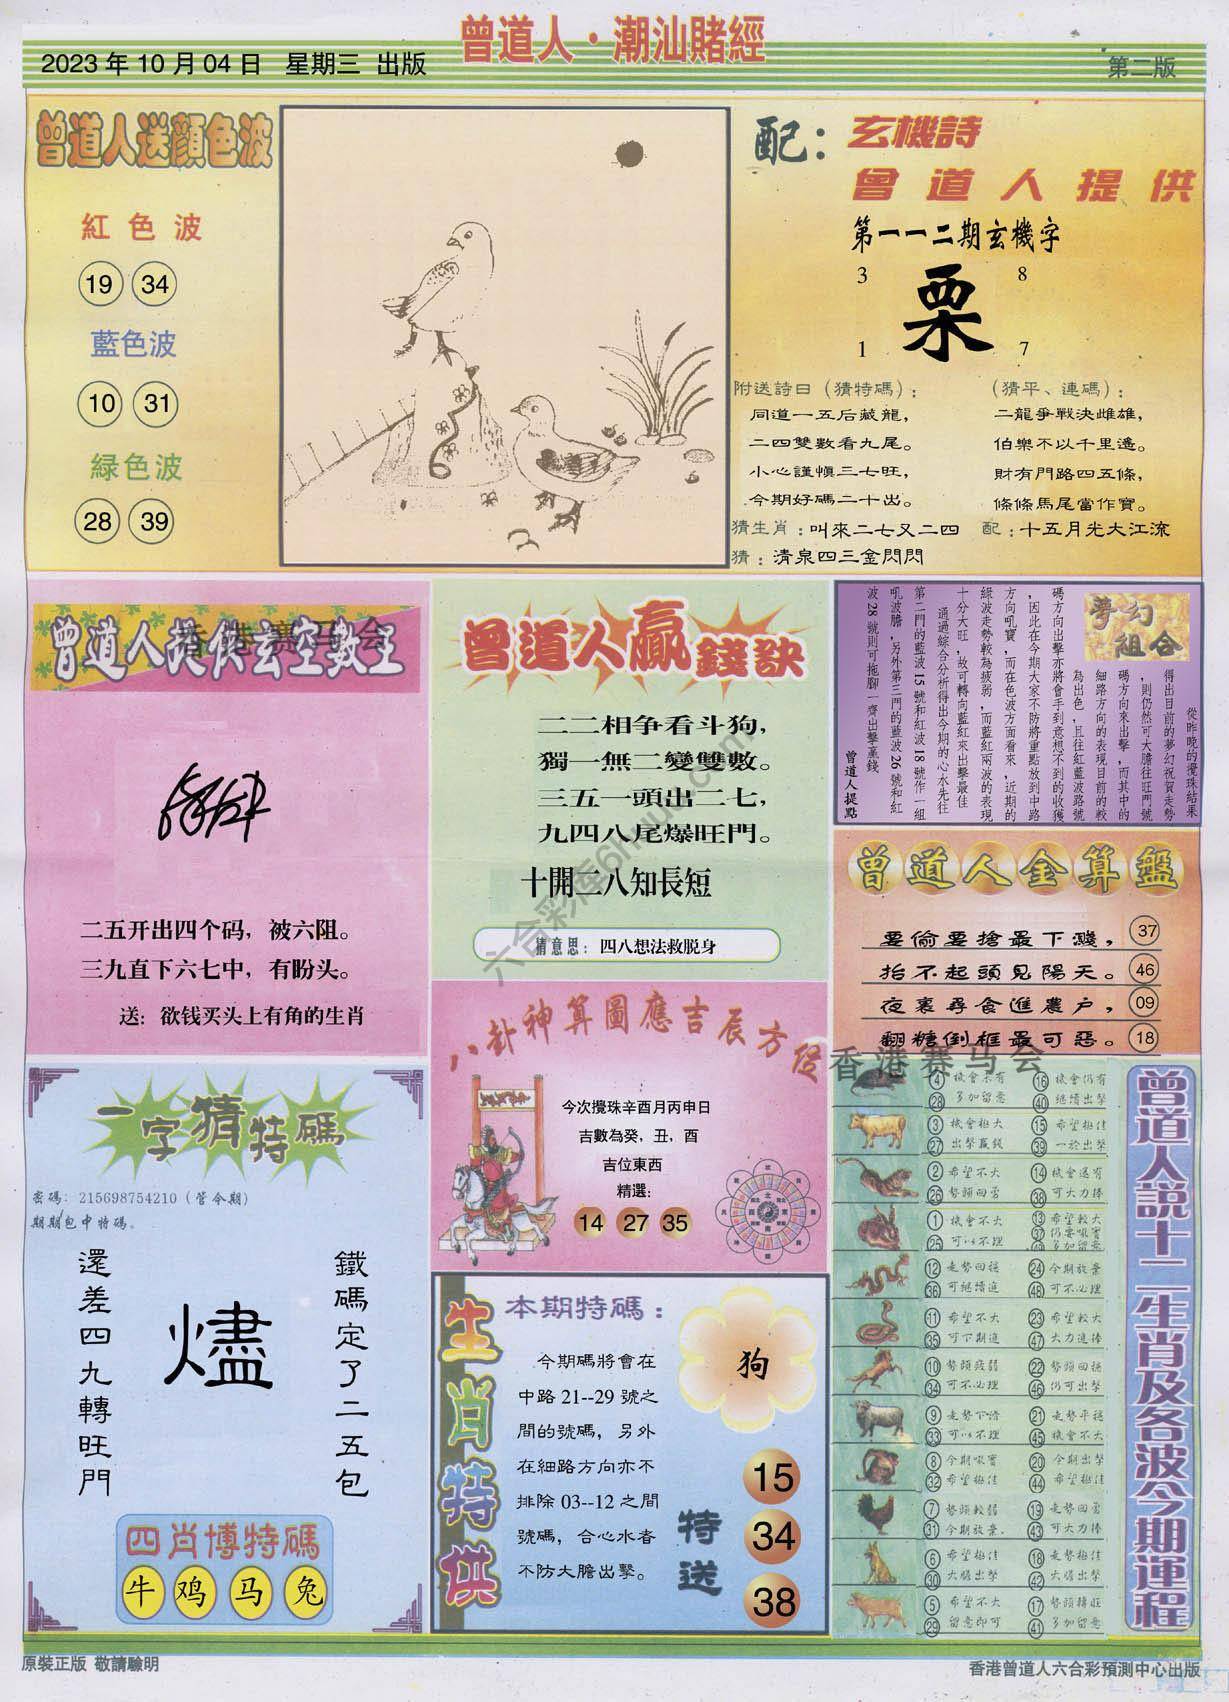 曾道人·潮汕賭經
2023年10月04日 星期三 出版
第二版
曾道人送顔色波
紅色波
19 34
藍色波
10 31
緑色波
28 39
配：
玄機詩
曾道人提供
第一一二期玄機字
3 8
栗
1 7
附送詩曰（猜特碼）：
同道一五后藏龍，
二四雙數看九尾。
小心謹慎三七旺，
今期好碼二十出。
（猜平、連碼）：
二龍爭戰決雌雄，
伯樂不以千里遙。
財有門路四五條，
條條馬尾當作寶。
猜生肖：叫來二七又二四
配：十五月光大江流
猜：清泉四三金閃閃
曾道人提供玄空數王
香港赛马会
二五开出四个码，被六阻。
三九直下六七中，有盼头。
送：欲钱买头上有角的生肖
曾道人贏錢訣
二二相争看斗狗，
獨一無二變雙數。
三五一頭出二七，
九四八尾爆旺門。
十開二八知長短
猜意思：四八想法救脱身
六合彩库6huuu.com
夢幻組合
從昨晚的攪珠結果
得出目前的夢幻祝賀走勢
，則仍然可大膽往旺門號
碼方向來出擊，而其中的
細路方向的表現目前的較
為出色，且往紅藍波路號
碼方向出擊亦將會手到意想不到的收獲
，因此在今期大家不防將重點放到中路
方向吼寶，而在色波方面看來，近期的
綠波走勢較為疲弱，而藍紅兩波的表現
十分大旺，故可轉向藍紅來出擊最佳
通過綜合分析得出今期的心水先往
第二門的藍波15號和紅波18號作一組
吼波膽，另外第三門的藍波26號和紅
波28號則可拖腳一齊出擊贏錢
曾道人提點
曾道人金算盤
要偷要搶最下濺， 37
抬不起頭見陽天。 46
夜裏尋食進農户， 09
翻糖倒框最可惡。 18
香港赛马会
八卦神算圖應吉辰方位
今次攪珠辛酉月丙申日
吉數為癸，丑，酉
吉位東西
精選：
14 27 35
一字猜特碼
密碼：215698754210（管今期）
期期包中特碼。
鐵碼定了二五包
燼
還差四九轉旺門
四肖博特碼
牛 鸡 马 兔
生肖特供
本期特碼：
今期碼將會在
中路21--29號之
間的號碼，另外
在細路方向亦不
排除03--12之間
號碼，合心水者
不防大膽出擊。
狗
特送
15
34
38
曾道人説十二生肖及各波今期運程
4 機會未有 16 機會仍有
28 多加留意 40 繼續出擊
3 機會極大 15 希望極佳
27 出擊贏錢 39 一於出擊
2 希望不大 14 機會還有
26 勢頭回勇 38 可大力捧
1 機會不大 13 希望較大
25 可以不理 37 仍要吼實
49 多加留意
12 走勢回穩 24 今期放棄
36 可繼續追 48 可不必理
11 希望不大 23 希望較大
35 可下期追 47 大力追捧
10 勢頭疲弱 22 勢頭回穩
34 可不必理 46 仍可出擊
9 走勢下滑 21 走勢平穩
33 可以不理 45 機會不大
8 今期吼實 20 今期出擊
32 希望極佳 44 希望極佳
7 勢頭較弱 19 走勢回勇
31 今期放棄. 43 可大力捧
6 希望極佳 18 走勢極佳
30 大膽出擊 42 大膽出擊
5 希望不大 17 勢頭轉旺
29 留意即可 41 多加留意
原裝正版 敬請驗明
香港曾道人六合彩預測中心出版